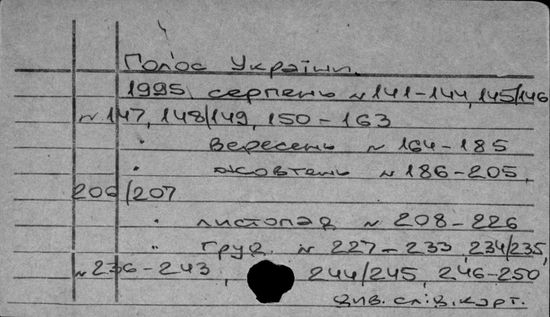 Голос України.
1995 серпень № 141-144, 145/146
№ 147, 148/149, 150-163
" вересень № 164-185
" жовтень № 186-205,
206/207
" листопад № 208-226
" груд. № 227-233, 234/235,
№ 236-243, 244/245, 246-250
див. слід. карт.